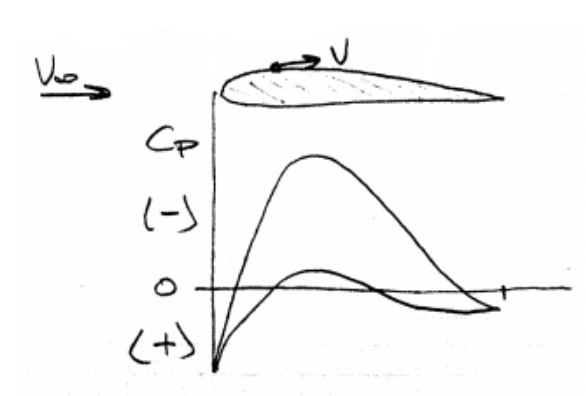 V∞
V
Cp
(-)
0
(+)